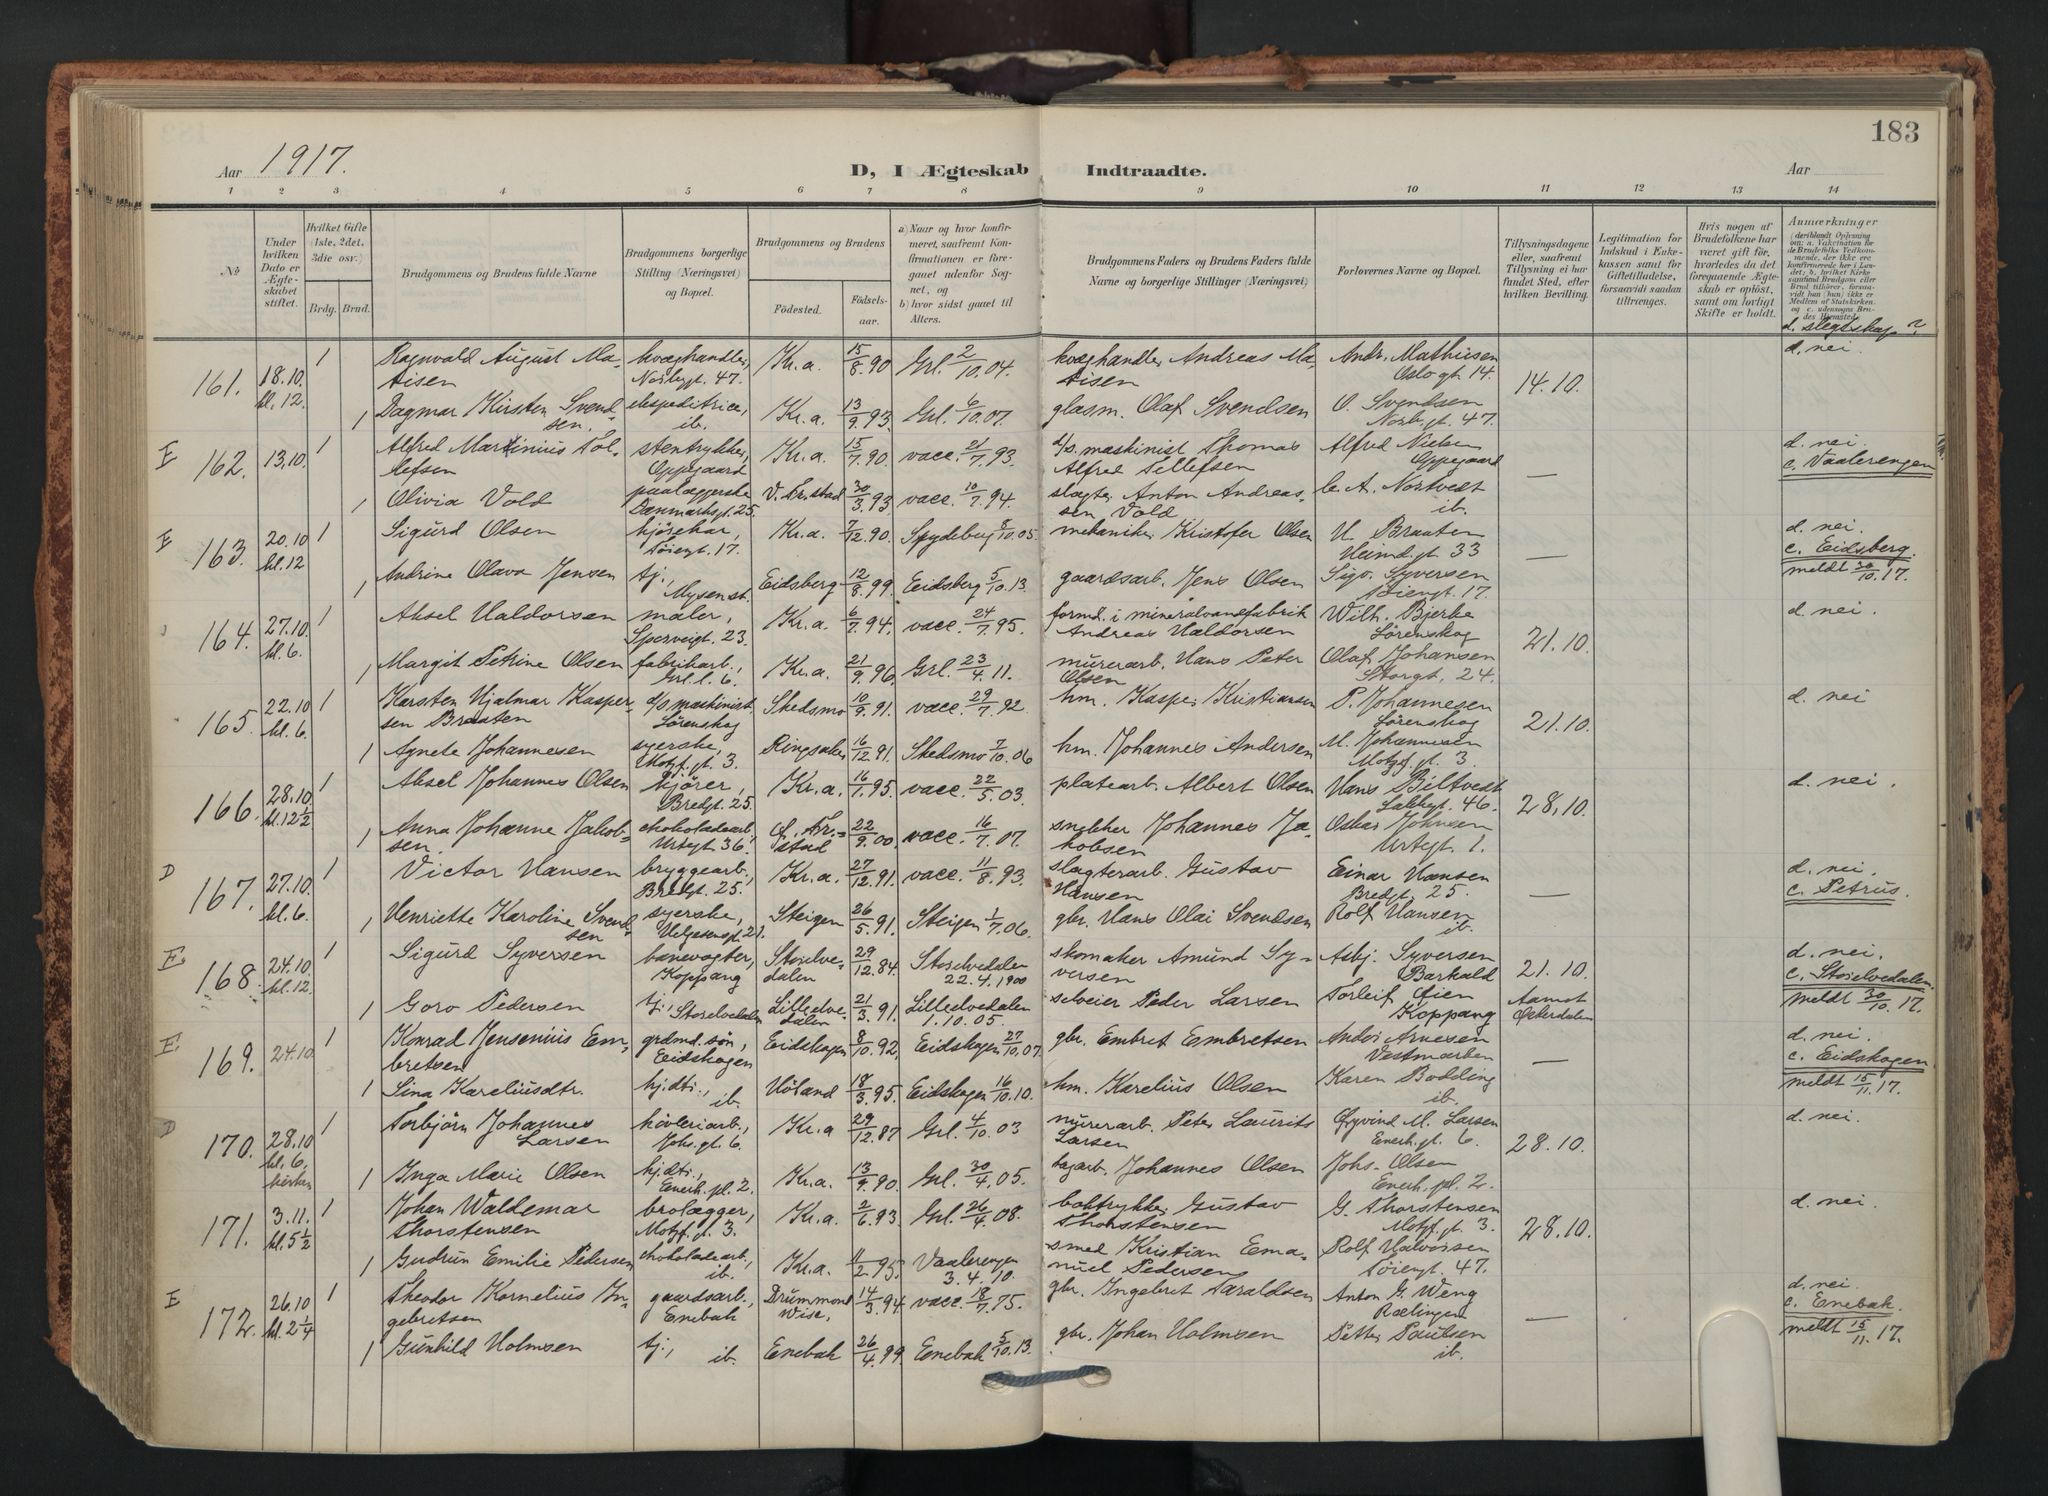 183
Aar 1917.
D, I Ægteskab Indtraadte.
Aar
1 2 3 4 5 6 7 8 9 10 11 12 13 14
No
Under hvilken Dato er Ægteskabet stiftet.
Hvilket Gifte (1ste, 2det, 3die osv.)
Brdg. Brud.
Brudgommens og Brudens fulde Navne
Brudgommens borgerlige Stilling (Næringsvei) og Bopæl.
Brudgommens og Brudens
Fødested. Födsels-aar.
a) Naar og hvor konfirmeret, saafremt Konfirmationen er foregaaet udenfor Sognet, og
b) hvor sidst gaaet til Alters.
Brudgommens Faders og Brudens Faders fulde Navne og borgerlige Stillinger (Næringsvei)
Forlovernes Navne og Bopæl.
Tillysningsdagene eller, saafremt Tillysning ei har fundet Sted, efter hvilken Bevilling.
Legitimation for Indskud i Enkekassen samt for Giftetilladelse, forsaavidt saadan tiltrænges.
Hvis nogen af Brudefolkene har været gift før, hvorledes da det foregaaende Ægteskab er opløst, samt om lovligt Skifte er holdt.
Anmærkninger
d. slegtskap?
161. 18.10. kl. 12 1 Ragnvald August Matisen kvæghandler, Norbygt. 47. Kr.a. 15/8.90 Grl. 2/10.04. kvæghandler Andreas Matisen Andr. Mathisen Oslo gt. 14. 14.10. d. nei.
1 Dagmar Kirsten Svendsen. ekspeditrice, ib. Kr.a. 13/9.93. Grl. 6/10.07. glasm. Olaf Svendsen O. Svendsen Norb.gt. 47.
E 162. 13.10. 1 Alfred Martinius Tollefsen stentrykker, Oppegaard Kr.a. 15/7.90. vacc. 21/7.93. d/s. maskinist Thomas Alfred Tillefsen Alfred Nielsen Oppegaard — d. nei. c. Vaalerengen
1 Olivia Vold paalæggerske Danmarksgt. 25. V. Fr.stad 30/3.93 vacc. 10/7.94. slagter Anton Andreassen Vold C. A. Nortvedt ib.
E 163. 20.10 kl. 12 1 Sigurd Olsen kjørekar, Tøiengt. 17. Kr.a. 7/12.90. Spydeberg 8/10.05. mekaniker Kristofer Olsen H. Braaten Heimd.gt. 33 — d. nei. c. Eidsberg. meldt 30/10.17.
1 Andrine Olava Jensen tj., Mysen st. Eidsberg 12/8.99. Eidsberg 5/10.13. gaardsarb. Jens Olsen Sigv. Syversen Tøiengt. 17.
164. 27.10. kl. 6. 1 Aksel Haldorsen maler, Sperveigt. 23. Kr.a. 6/7.94. vacc. 24/7.95. formd. i mineralvandfabrik Andreas Haldorsen Wilh. Bjerke Lørenskog 21.10. d. nei.
1 Margit Petrine Olsen fabrikarb., Grl. l. 6. Kr.a. 21/9.96. Grl. 23/4.11. murerarb. Hans Peter Olsen Olaf Johansen Storgt. 24.
165. 22.10 kl. 6. 1 Karsten Hjalmar Kaspersen Braaten d/s. maskinist, Lørenskog Skedsmo 10/9.91. vacc. 29/7.92. hm. Kasper Kristiansen P. Johannesen Lørenskog 21.10. d. nei
1 Agnete Johannesen syerske, Motzf.gt. 3. Ringsaker 16/12.91. Skedsmo 7/10.06 hm. Johannes Andersen M. Johannesen Motzf. gt. 3.
166. 28.10. kl. 12½ 1 Aksel Johannes Olsen kjører, Bredgt. 25. Kr.a. 16/1.95. vacc. 22/5.03. platearb. Albert Olsen Hans Biltvedt Lakkegt. 46. 28.10. d. nei.
1 Anna Johanne Jakobsen. chokoladearb., Urtegt. 36. Ø. Fr.-stad 22/9.00. vacc. 16/7.07. snekker Johannes Jakobsen Oskar Johnsen Urtegt. 1.
D 167. 27.10. kl. 6. 1 Victor Hansen bryggearb., Bredgt. 25. Kr.a. 27/12.91. vacc. 11/8.93. slagterarb. Gustav Hansen Einar Hansen Bredgt. 25. — d. nei. c. Petrus.
1 Henriette Karoline Svendsen syerske, Helgesensgt. 21. Steigen 26/5.91. Steigen 1/7.06. gbr. Hans Olai Svendsen Rolf Hansen ib.
E. 168. 24.10. kl. 12. 1 Sigurd Syversen banevogter, Koppang Storelvedalen 29/12.84. Storelvedalen 22.4.1900 skomaker Amund Syversen Asbj. Syversen Barkald 21.10. d. nei. c. Storelvedalen. meldt 30/10.17.
1 Goro Pedersen tj., Storelvedalen Lilleelvedalen 21/3.91. Lilleelvedalen 1.10.05. selveier Peder Larsen Torleif Øien Koppang Aamot Østerdalen
E. 169. 24.10. 1 Konrad Jensenius Embretsen grdmd. søn, Eidskogen Eidskogen 8/10.92. Eidskogen 27/10.07. gbr. Embret Embretsen Anders Arnesen Vestmarken — d. nei. c. Eidskogen meldt 15/11.17.
1 Lina Kareliusdtr. hjdtr., ib. Høland 18/3.95. Eidskogen 16/10.10. hm. Karelius Olsen Karen Bodding ib.
D 170. 28.10 kl. 6. kirken 1 Torbjørn Johannes Larsen høvleriarb., Johs. gt. 6. Kr.a 29/12.87 Grl. 4/10.03 murerarb. Peter Laurits Larsen Øyvind M. Larsen Enerh. pt. 6. 28.10. d. nei.
1 Inga Marie Olsen hjdtr., Enerh. pl. 2. Kr.a. 13/9.90. Grl. 30/4.05. tagarb. Johannes Olsen Johs. Olsen Enerh. pl. 2.
171. 3.11. kl. 5½ 1 Johan Waldemar Thorstensen brolægger, Motzf. gt. 3. Kr.a. 2/6.93. Grl. 26/4.08. boktrykker Gustav Thorstensen G. Thorstensen Motzf. gt. 3. 28.10. d. nei
1 Gudrun Emilie Pedersen chokoladearb., ib. Kr.a. 11/2.95. Vaalerengen 3.4.10. smed Kristian Emanuel Pedersen Rolf Halvorsen Tøiengt. 47.
E 172. 26.10 kl. 2¼ 1 Theodor Kornelius Ingebretsen gaardsarb., Enebak Drummond Wisc. 14/3.94. vacc. 18/7.75. gbr. Ingebret Taraldsen Anton G. Weng Rælingen d. nei. c. Enebak. meldt 15/11.17.
1 Gunhild Holmsen tj., ib. Enebak 26/4.99. Enebak 5/10.13. gbr. Johan Holmsen Petter Paulsen ib.